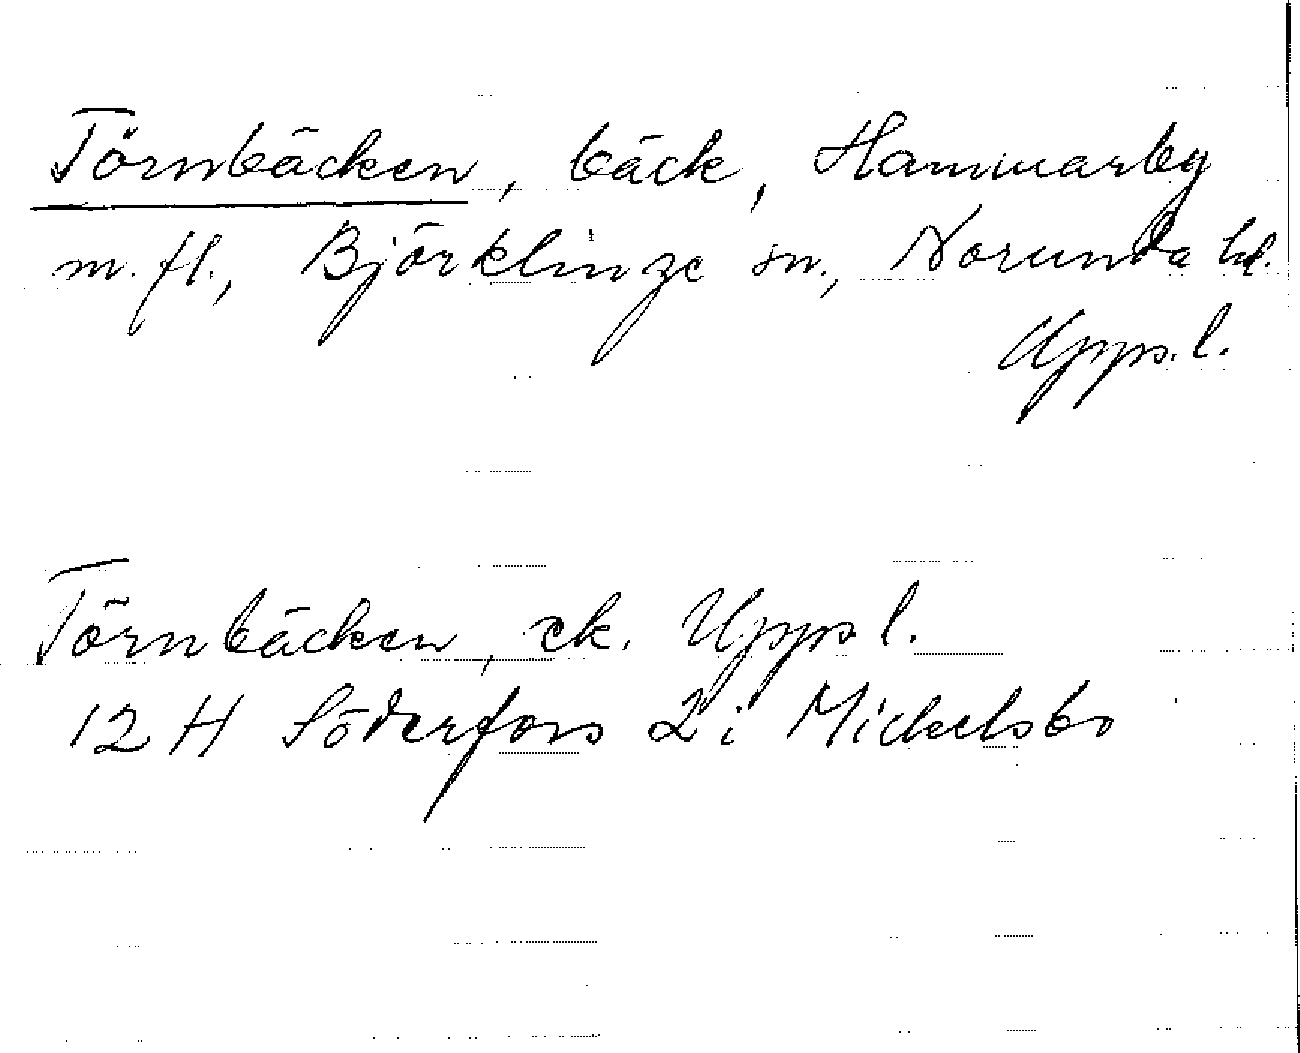 Törnbäcken, bäck, Hammarby
m.fl., Björklinge sn., Norunda hd.
Upps.l.
Törnbäcken, ek. Upps l.
12 H Söderfors 2 i Mickelsbo